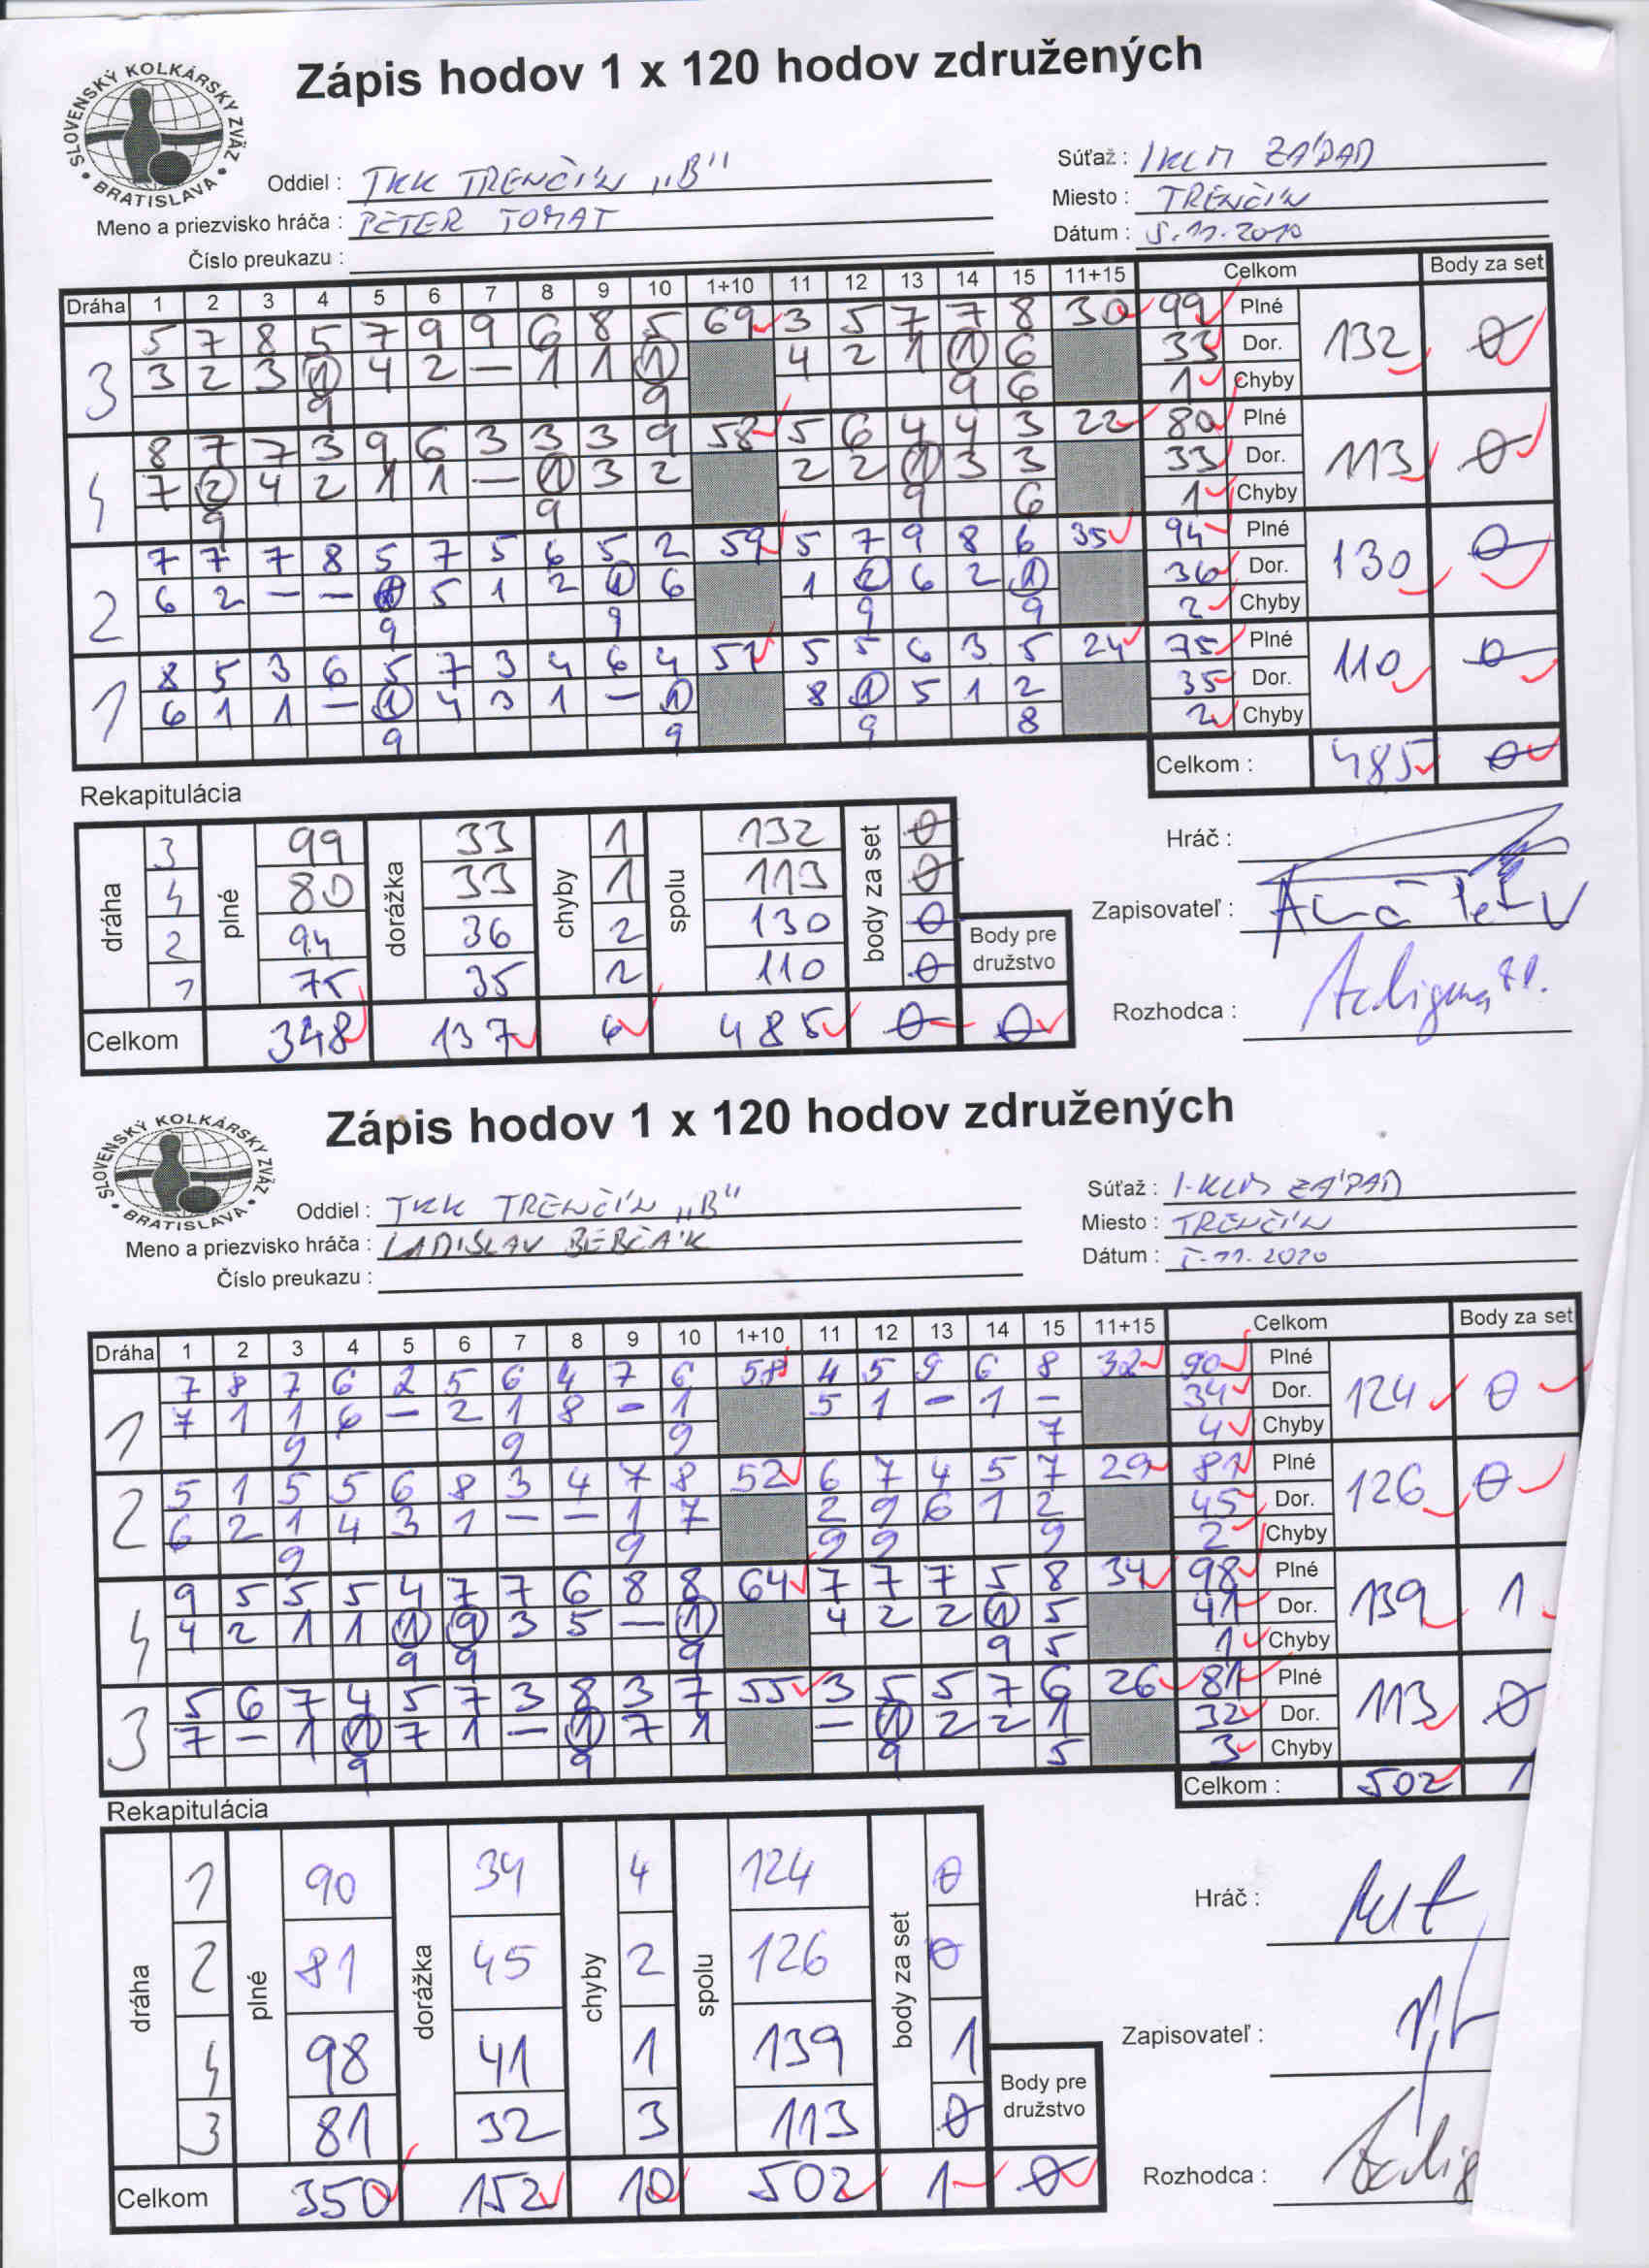 Zápis hodov 1 x 120 hodov združených
SLOVENSKÝ KOLKÁRSKY ZVÄZ • BRATISLAVA •
Oddiel : TKK TRENČÍN „B"
Súťaž : 1 KLM ZÁPAD
Meno a priezvisko hráča : PETER TOMAT
Miesto : TRENČÍN
Číslo preukazu :
Dátum : 5.11.2010
Dráha 1 2 3 4 5 6 7 8 9 10 1+10 11 12 13 14 15 11+15 Celkom Body za set
5 7 8 5 7 9 9 6 8 5 69 3 5 7 7 8 30 99 Plné
3 3 2 3 1 4 2 – 1 1 1 4 2 1 1 6 33 Dor. 132 0
9 9 9 6 1 Chyby
8 7 7 3 9 6 3 3 3 9 58 5 6 4 4 3 22 80 Plné
4 7 2 4 2 1 1 – 1 3 2 2 2 1 3 3 33 Dor. 113 0
9 9 9 6 1 Chyby
7 7 7 8 5 7 5 6 5 2 59 5 7 9 8 6 35 94 Plné
2 6 2 – – 5 1 2 1 6 1 6 2 1 36 Dor. 130 0
9 9 9 9 2 Chyby
8 5 3 6 5 7 3 4 6 4 51 5 5 6 3 5 24 75 Plné
1 6 1 1 – 1 4 3 1 – 1 8 1 5 1 2 35 Dor. 110 0
9 9 9 8 2 Chyby
Celkom : 485 0
Rekapitulácia
dráha plné dorážka chyby spolu body za set
3 99 33 1 132 0
4 80 33 1 113 0
2 94 36 2 130 0
1 75 35 2 110 0
Body pre družstvo
Celkom 348 137 6 485 0 0
Hráč :
Zapisovateľ :
Rozhodca :
Zápis hodov 1 x 120 hodov združených
SLOVENSKÝ KOLKÁRSKY ZVÄZ • BRATISLAVA •
Oddiel : TKK TRENČÍN „B"
Súťaž : 1. KLM ZÁPAD
Meno a priezvisko hráča : LADISLAV BEBČÁK
Miesto : TRENČÍN
Číslo preukazu :
Dátum : 5.11.2010
Dráha 1 2 3 4 5 6 7 8 9 10 1+10 11 12 13 14 15 11+15 Celkom Body za set
7 8 7 6 2 5 6 4 7 6 58 4 5 9 6 8 32 90 Plné
1 7 1 1 6 – 2 1 8 – 1 5 1 – 1 – 34 Dor. 124 0
9 9 9 7 4 Chyby
5 1 5 5 6 8 3 4 7 8 52 6 7 4 5 7 29 81 Plné
2 6 2 1 4 3 1 – – 1 7 2 9 6 1 2 45 Dor. 126 0
9 9 9 9 9 2 Chyby
9 5 5 5 4 7 7 6 8 8 64 7 7 7 5 8 34 98 Plné
4 4 2 1 1 1 9 3 5 – 1 4 2 2 1 5 41 Dor. 139 1
9 9 9 9 5 1 Chyby
5 6 7 4 5 7 3 8 3 7 55 3 5 5 7 6 26 81 Plné
3 7 – 1 1 7 1 – 1 7 1 – 1 2 2 1 32 Dor. 113 0
9 9 9 5 3 Chyby
Celkom : 502 1
Rekapitulácia
dráha plné dorážka chyby spolu body za set
1 90 34 4 124 0
2 81 45 2 126 0
4 98 41 1 139 1
3 81 32 3 113 0
Body pre družstvo
Celkom 350 152 10 502 1 0
Hráč :
Zapisovateľ :
Rozhodca :